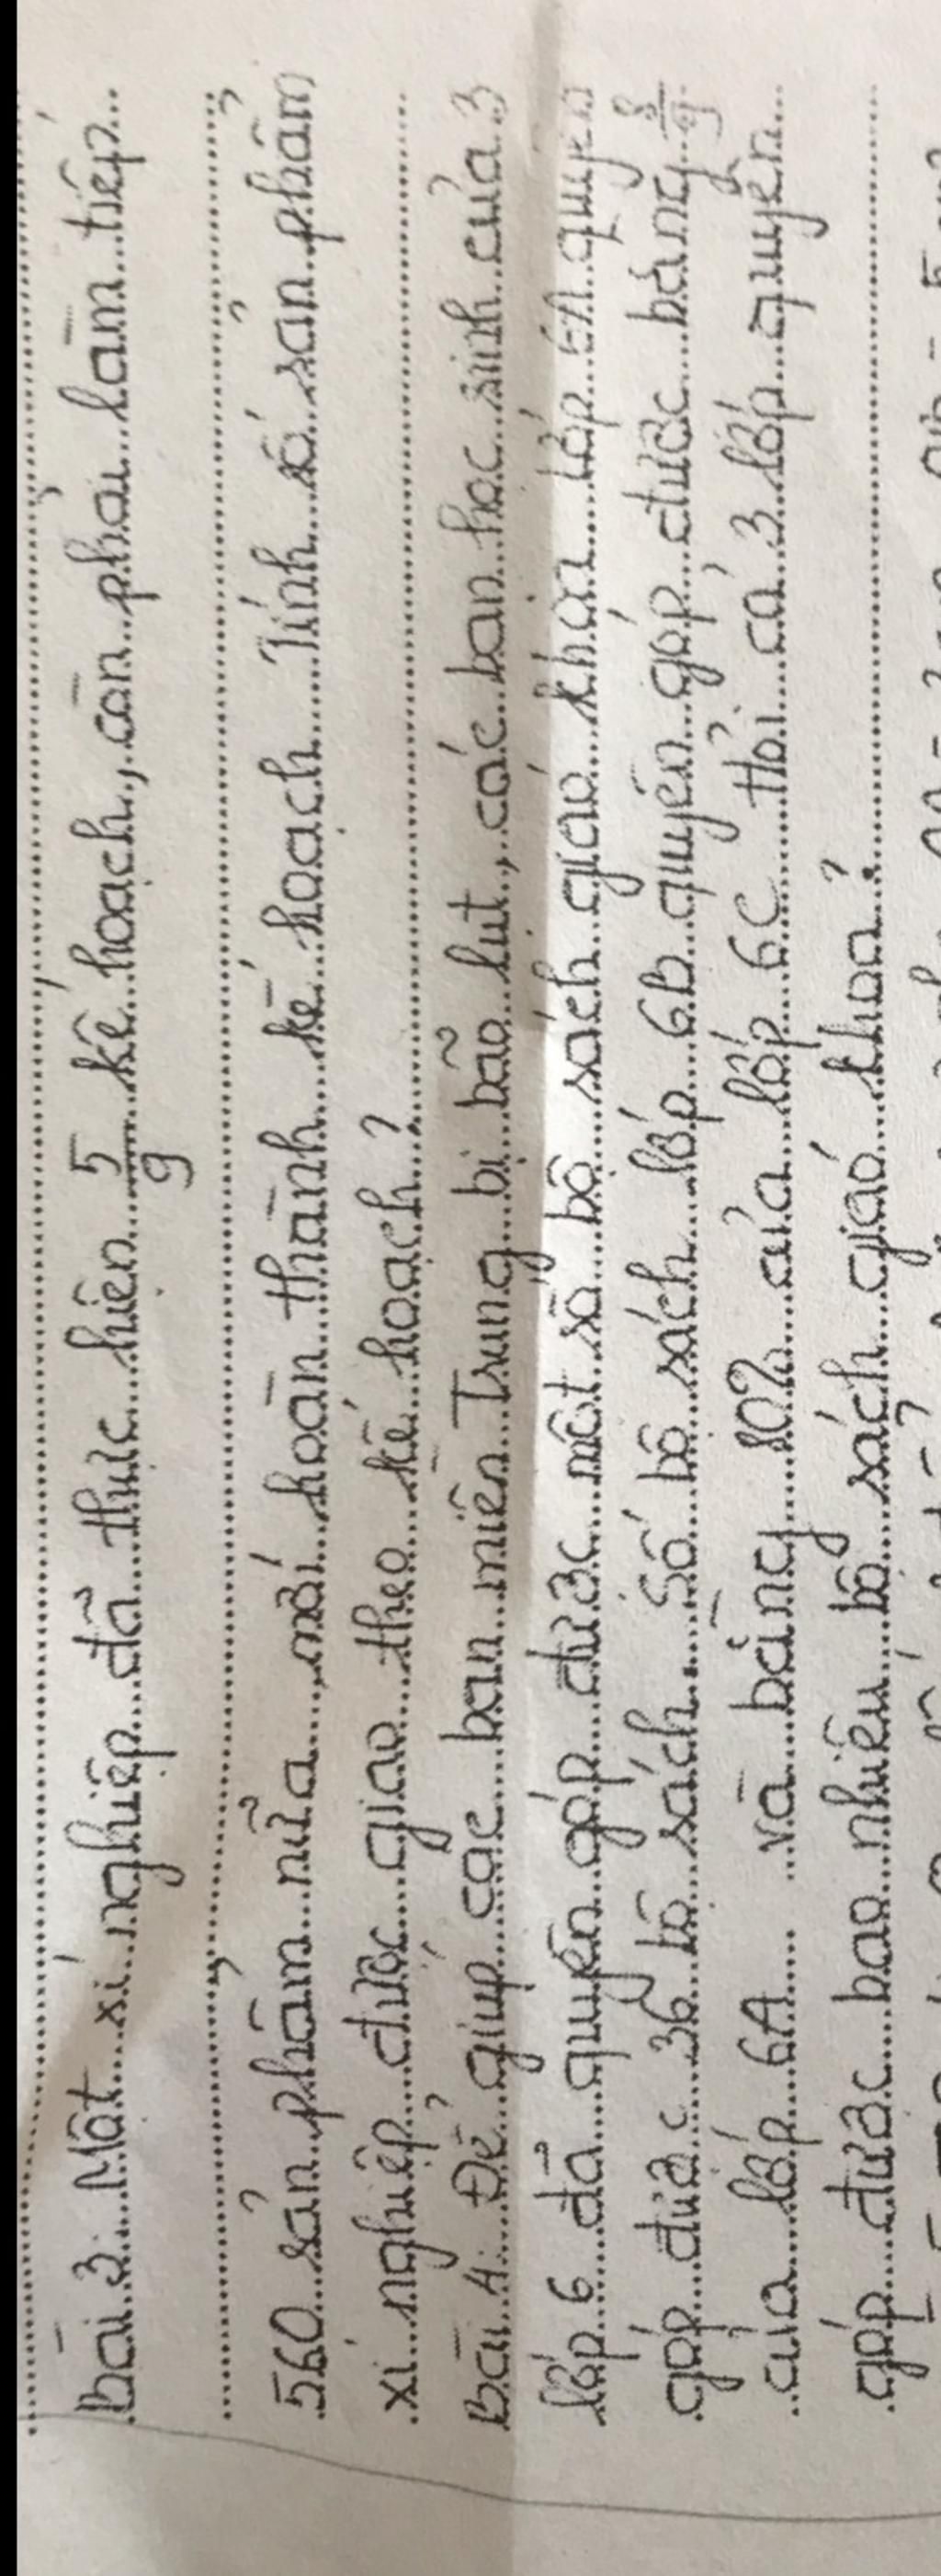 Bài 3: Một xí nghiệp đã thực hiện 5/9 kế hoạch, còn phải làm tiếp
560 sản phẩm nữa, mới hoàn thành kế hoạch. Tính số sản phẩm
xí nghiệp được giao theo kế hoạch?
Bài 4: Để giúp các bạn miền Trung bị bão lụt, các bạn học sinh của 3
lớp 6 đã quyên góp được một số bộ sách giáo khoa. Lớp 6A quyên
góp được 36 bộ sách. Số bộ sách lớp 6B quyên góp được bằng 8/9
của lớp 6A và bằng 80% của lớp 6C. Hỏi cả 3 lớp quyên
góp được bao nhiêu bộ sách giáo khoa?